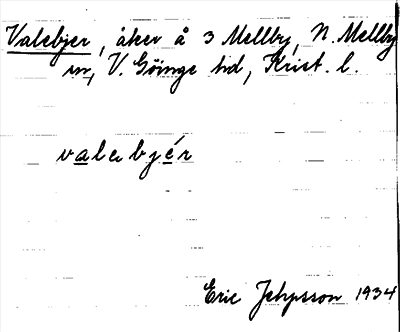 Valebjer, åker å 3 Mellby, N. Mellby
sn, V. Göinge hd, Krist. l.
valebjér
Eric Jepsson 1934